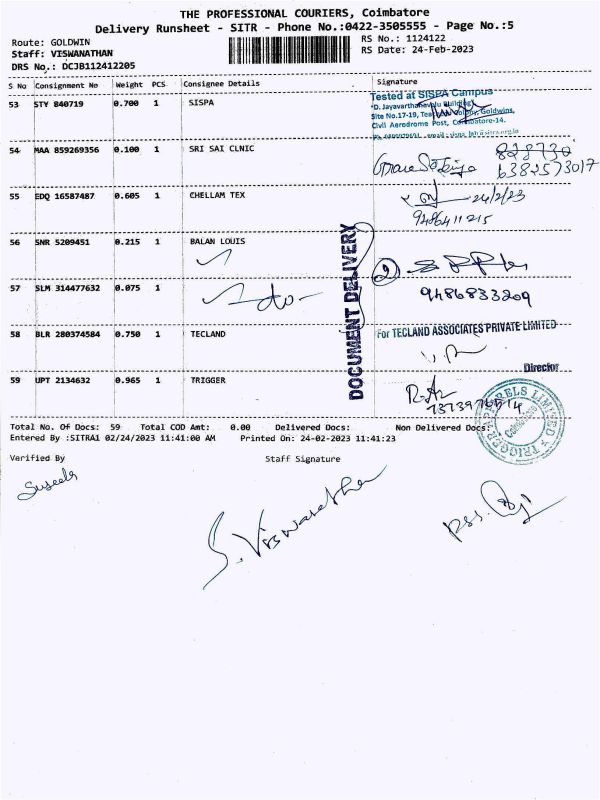 THE PROFESSIONAL COURIERS, Coimbatore
Delivery Runsheet - SITR - Phone No.:0422-3505555 - Page No.:5
Route: GOLDWIN
RS No.: 1124122
Staff: VISWANATHAN
RS Date: 24-Feb-2023
DRS No.: DCJB112412205
S No Consignment No Weight PCS Consignee Details Signature
53 STY 840719 0.700 1 SISPA
Tested at SISPA Campus
Site No.17-19, Goldwins,
Civil Aerodrome Post, Coimbatore-14.
54 MAA 859269356 0.100 1 SRI SAI CLNIC
6382573017
55 EDQ 16587487 0.605 1 CHELLAM TEX
24/2/23
9486411215
56 SNR 5209451 0.215 1 BALAN LOUIS
DOCUMENT DELIVERY
57 SLM 314477632 0.075 1
-do-
9486833209
58 BLR 280374584 0.750 1 TECLAND
For TECLAND ASSOCIATES PRIVATE LIMITED
Director
59 UPT 2134632 0.965 1 TRIGGER
Total No. Of Docs: 59 Total COD Amt: 0.00 Delivered Docs: Non Delivered Docs:
Entered By :SITRA1 02/24/2023 11:41:00 AM Printed On: 24-02-2023 11:41:23
Verified By Staff Signature
Suseela
S. Viswanathan